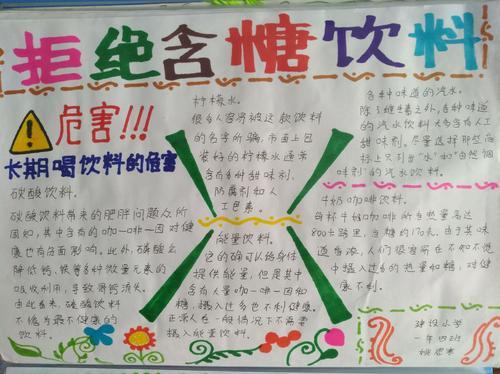 拒绝含糖饮料
危害!!!
长期喝饮料的危害
碳酸饮料。
碳酸饮料带来的肥胖问题众所
周知,其中含有的咖一啡一因对健
康也有负面影响。此外,磷酸会
降低钙、铁等多种微量元素的
吸收利用,导致骨钙流失。
由此看来,碳酸饮料
不愧为最不健康的
饮料。
柠檬水。
很多人容易被这款饮料
的名字所骗,市面上包
装好的柠檬水通常
含有多种甜味剂、
防腐剂和人
工色素。
能量饮料。
它的确可以给身体
提供能量,但是其中
含有大量咖一啡一因和
糖,摄入过多也不利健康。
正常人在一般情况下不需要
摄入能量饮料。
各种味道的汽水。
除了维生素之外,各种味道
的汽水饮料大多含有人工
甜味剂,尽量选择那些商
标上只列出"水"和"自然调
味剂"的汽水饮料。
牛奶咖啡饮料。
每杯牛奶咖啡的含热量高达
800千路里,含糖约170克。由于其味
道香浓,人们很容易在不知不觉
中摄入过多的热量和糖,对健
康不利。
建设小学
一年四班
姚思